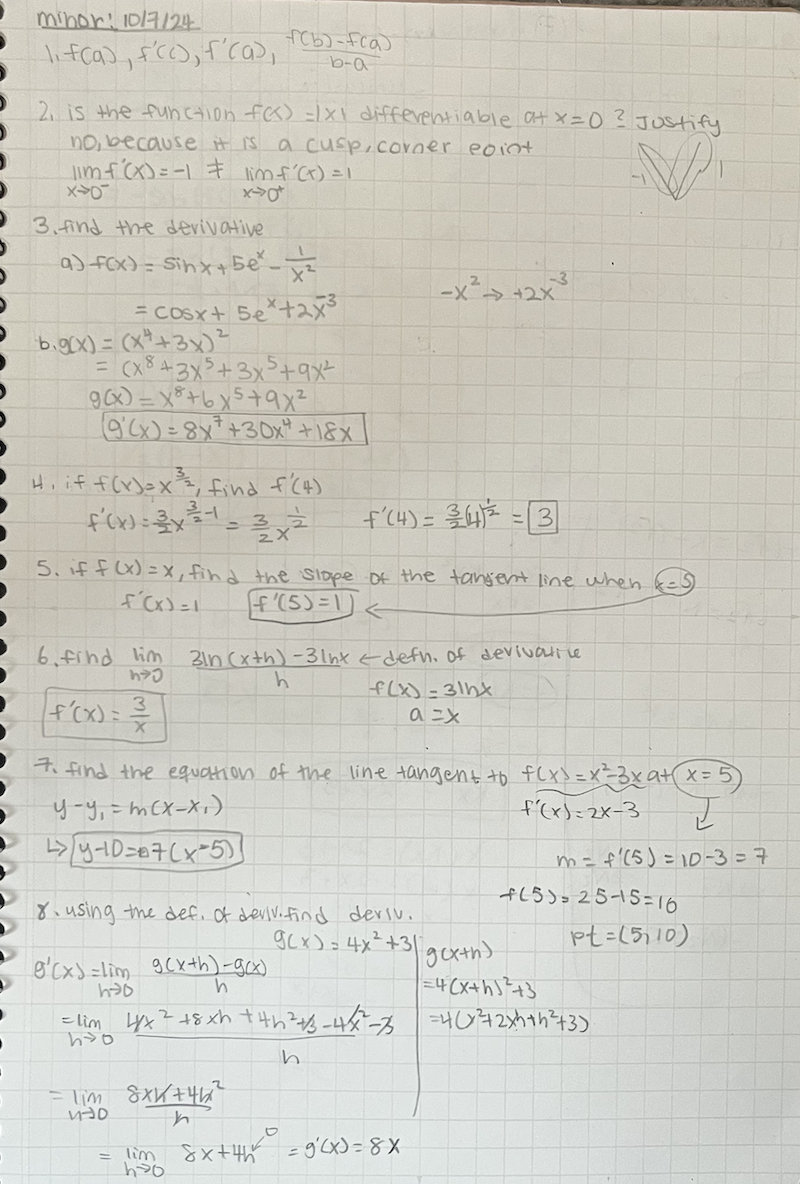 minor: 10/7/24
1. f(a), f'(c), f'(a), f(b)-f(a) / b-a
2. is the function f(x) = |x| differentiable at x=0? Justify
no, because it is a cusp, corner point
lim x→0⁻ f'(x) = -1 ≠ lim x→0⁺ f'(x) = 1
-1 1
3. find the derivative
a) f(x) = sinx + 5eˣ - 1/x²
-x² → +2x⁻³
= cosx + 5eˣ + 2x⁻³
b. g(x) = (x⁴+3x)²
= (x⁸+3x⁵+3x⁵+9x²
g(x) = x⁸+6x⁵+9x²
g'(x) = 8x⁷+30x⁴+18x
4. if f(x) = x^3/2, find f'(4)
f'(x) = 3/2 x^3/2-1 = 3/2 x^1/2 f'(4) = 3/2(4)^1/2 = 3
5. if f(x) = x, find the slope of the tangent line when x=5
f'(x) = 1 f'(5) = 1
6. find lim h→0 3ln(x+h)-3lnx / h ← defn. of derivative
f(x) = 3lnx
f'(x) = 3/x a = x
7. find the equation of the line tangent to f(x) = x²-3x at x=5
y-y₁ = m(x-x₁) f'(x) = 2x-3
↳ y-10=7(x-5) m = f'(5) = 10-3 = 7
f(5) = 25-15=10
pt = (5,10)
8. using the def. of deriv. find deriv.
g(x) = 4x²+3
g'(x) = lim h→0 g(x+h)-g(x) / h
= lim h→0 4x²+8xh+4h²+3-4x²-3 / h
= lim h→0 8xh+4h² / h
= lim h→0 8x+4h 0 = g'(x) = 8x
g(x+h)
= 4(x+h)²+3
= 4(x²+2xh+h²+3)